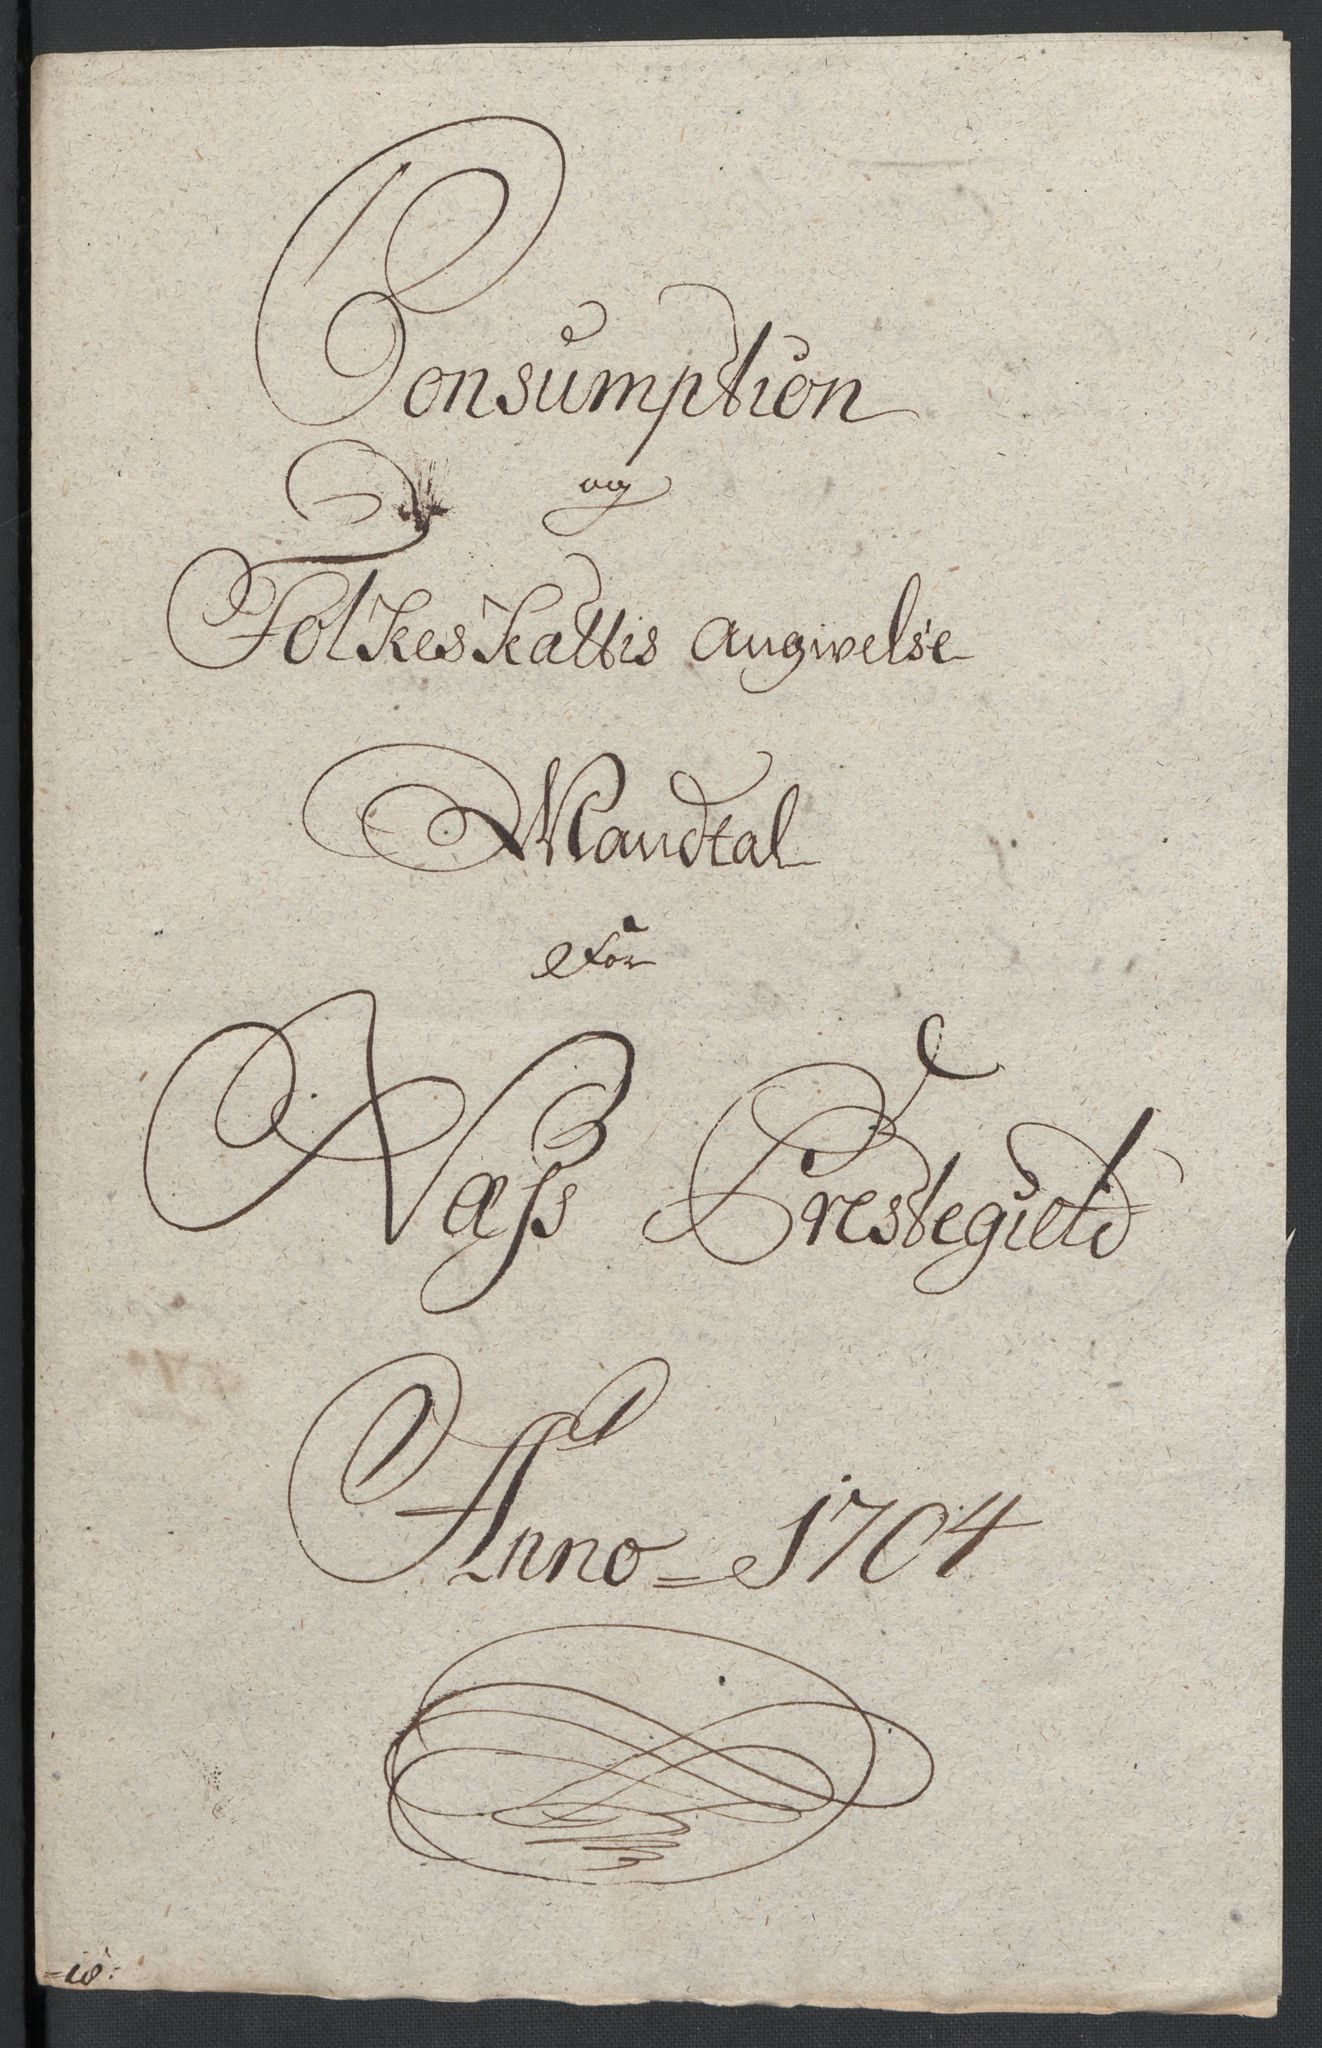 Consumption
og
Folkeskattis angivelse
Mandtal
For
Næss Prestegield
Anno = 1704
= 10: